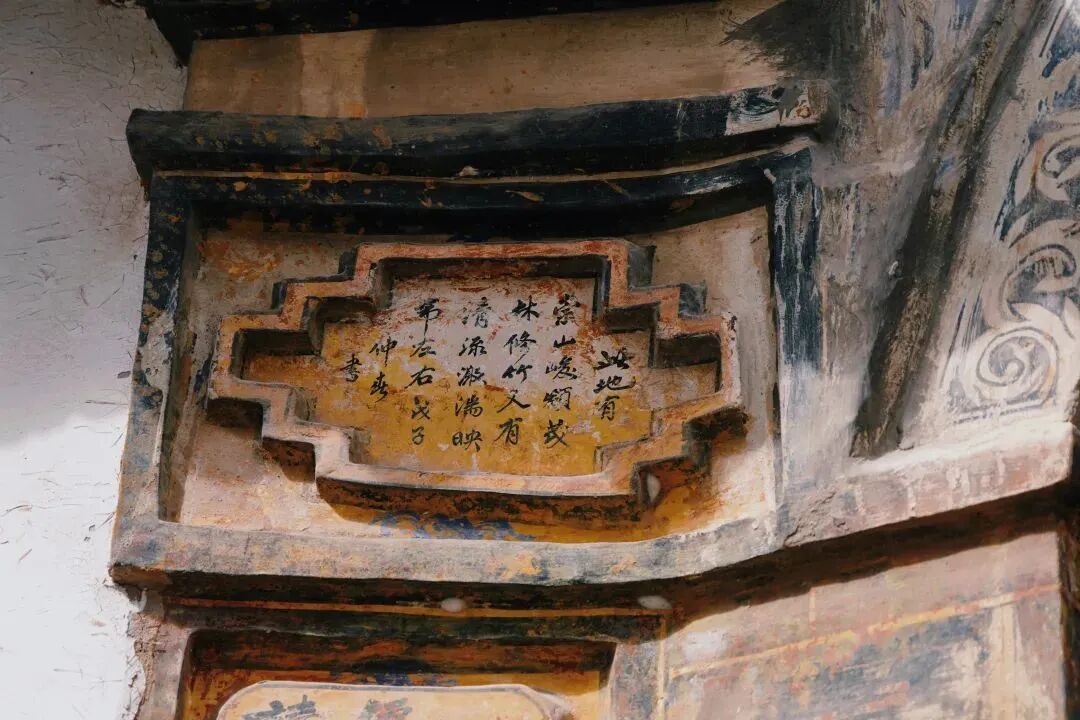 此地有
崇山峻領茂
林修竹又有
清流激湍映
帶左右戊子
仲春
書